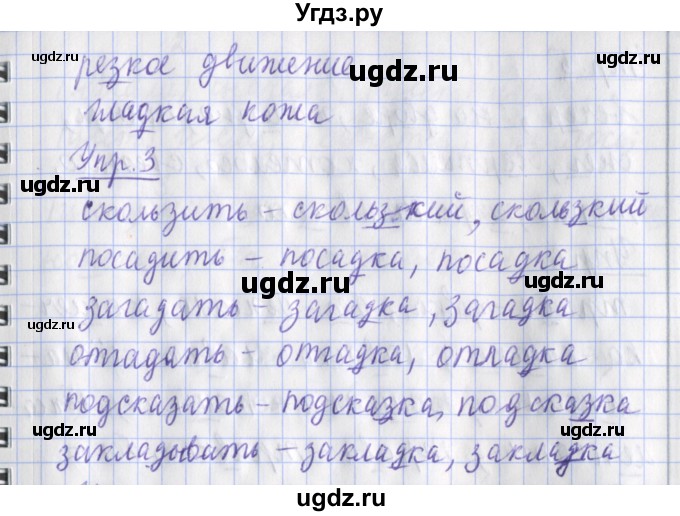 Угдз.ру
резкое движение
ugdz.ru
ugdz.ru
ugdz.ru
гладкая кожа
Упр. 3
ugdz.ru
ugdz.ru
скользить – скользкий, скользкий
посадить – посадка, посадка
ugdz.ru
загадать – загадка, загадка
ugdz.ru
ugdz.ru
отгадать – отгадка, отгадка
подсказать – подсказка, подсказка
ugdz.ru
ugdz.ru
ugdz.ru
закладывать – закладка, закладка
ugdz.ru